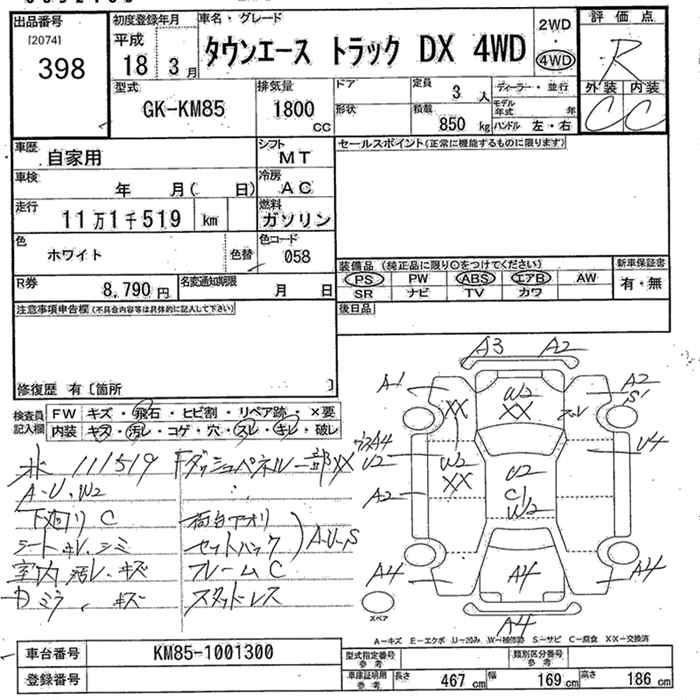 出品番号
[2074]
398
初度登録年月
平成
18年3月
車名・グレード
タウンエース トラック DX 4WD
2WD
・
4WD
評価点
R
外装 内装
C C
型式
GK-KM85
排気量
1800
cc
ドア
形状
定員
3人
積載
850 kg
ディーラー・並行
モデル年式 年
ハンドル 左・右
車歴
自家用
シフト
MT
車検
年 月( 日)
冷房
AC
走行
11万1千519 km
燃料
ガソリン
色
ホワイト
色替
色コード
058
R券
8,790円
名変通知期限
月 日
セールスポイント(正常に機能するものに限ります)
装備品(純正品に限り○をつけてください)
PS PW ABS エアB AW
SR ナビ TV カワ
新車保証書
有・無
注意事項申告欄(不具合内容等は具体的に記入して下さい)
後日品
修復歴 有〔箇所 〕
検査員記入欄
FW キズ・飛石・ヒビ割・リペア跡・×要
内装 キズ・汚レ・コゲ・穴・スレ・キレ・破レ
111519 Fダッシュパネル一部XX
A・U・W2
下廻り C 荷台アオリ
シートキレ・シミ セットバック A・U・S
室内汚レ・キズ フレームC
キズ スタッドレス
A3 A2
A1 W2 A2
XX XX S1
A4 U4
U2 W2 U2
XX
A2 C1
W2
A4 A4 A4
A4
スペア
A-キズ E-エクボ U-凹み W-補修跡 S-サビ C-腐食 XX-交換済
車台番号
KM85-1001300
登録番号
型式指定番号
参考
類別区分番号
参考
車庫証明用
参考
長さ 467 cm 幅 169 cm 高さ 186 cm